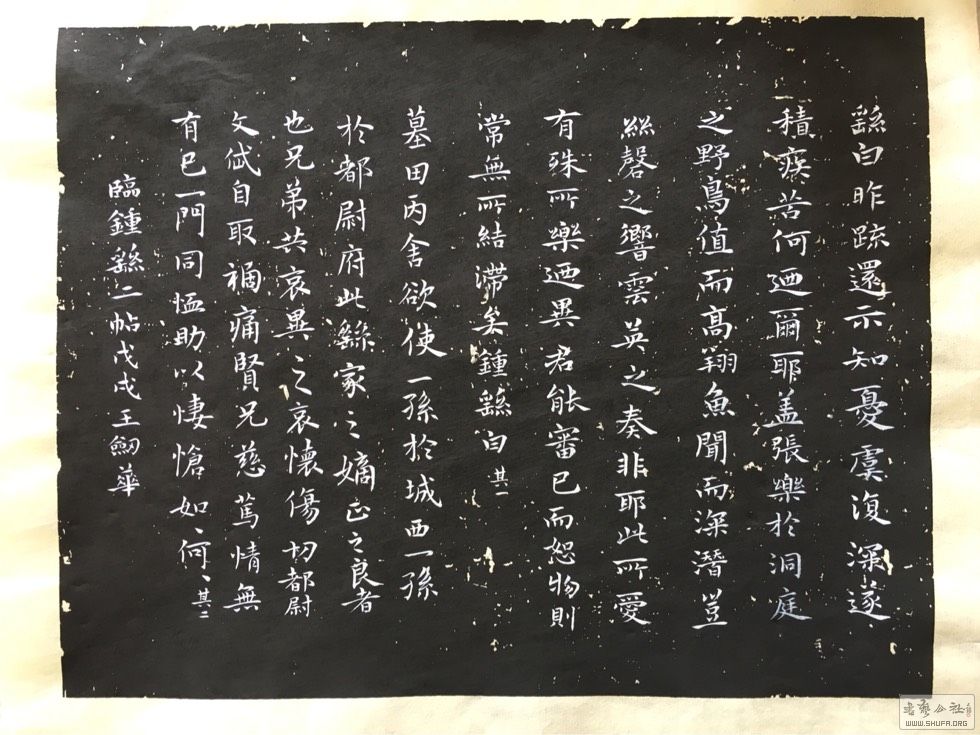 繇白昨疏還示知憂虞復深遂
積疾苦何迺爾耶盖張樂於洞庭
之野鳥值而高翔魚聞而深潛豈
絲磬之響雲英之奏非耶此所愛
有殊所樂迺異君能審己而恕物則
常無所結滯矣鍾繇白其一
墓田丙舍欲使一孫於城西一孫
於都尉府此繇家之嫡正之良者
也兄弟共哀異之哀懷傷切都尉
文岱自取禍痛賢兄慈篤情無
有已一門同恤助以悽愴如、何、其二
臨鍾繇二帖戊戌王劒華
书艺公社
WWW.SHUFA.ORG